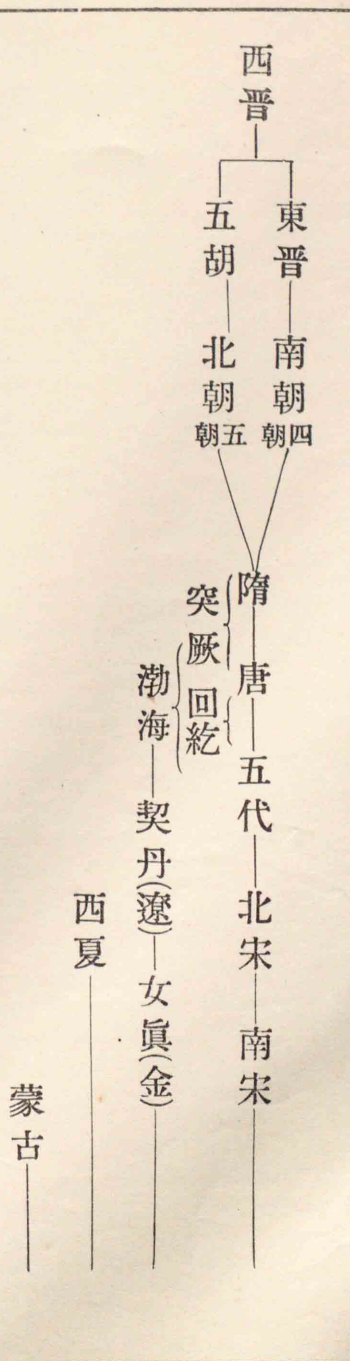 西晋
東晋
南朝
四朝
五胡
北朝
五朝
隋
唐
五代
北宋
南宋
突厥
回紇
渤海
契丹(遼)
女眞(金)
西夏
蒙古